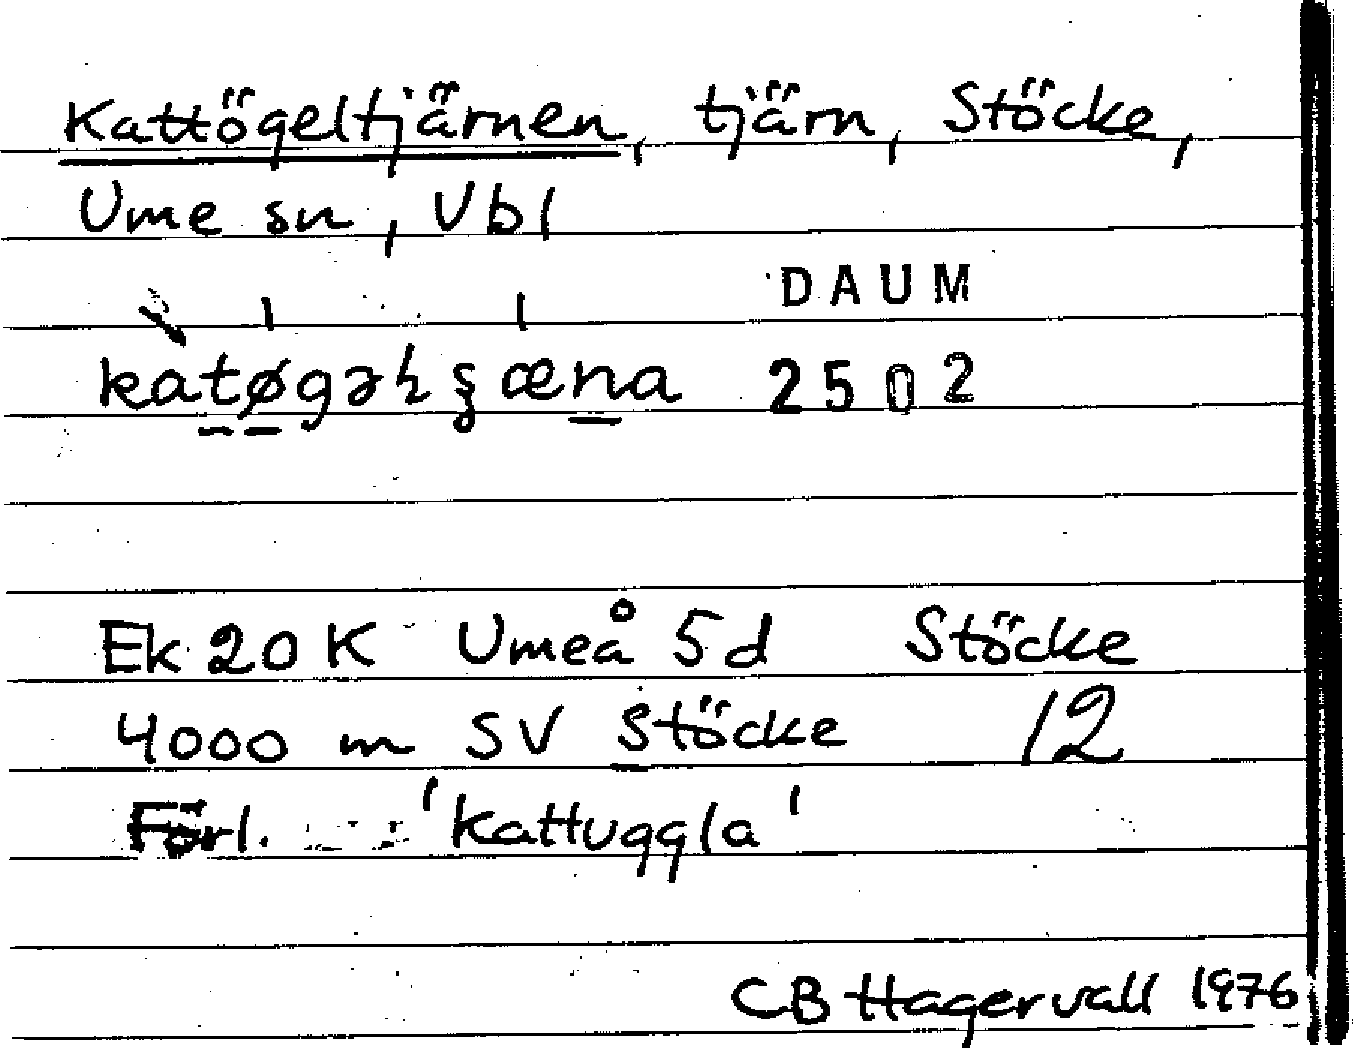 Kattögeltjärnen, tjärn, Stöcke,
Ume sn, Vbl
DAUM
katøgəɫʂæna 2502
Ek 20 K Umeå 5d Stöcke
4000 m SV Stöcke 12
Förl. 'kattuggla'
CB Hagervall 1976